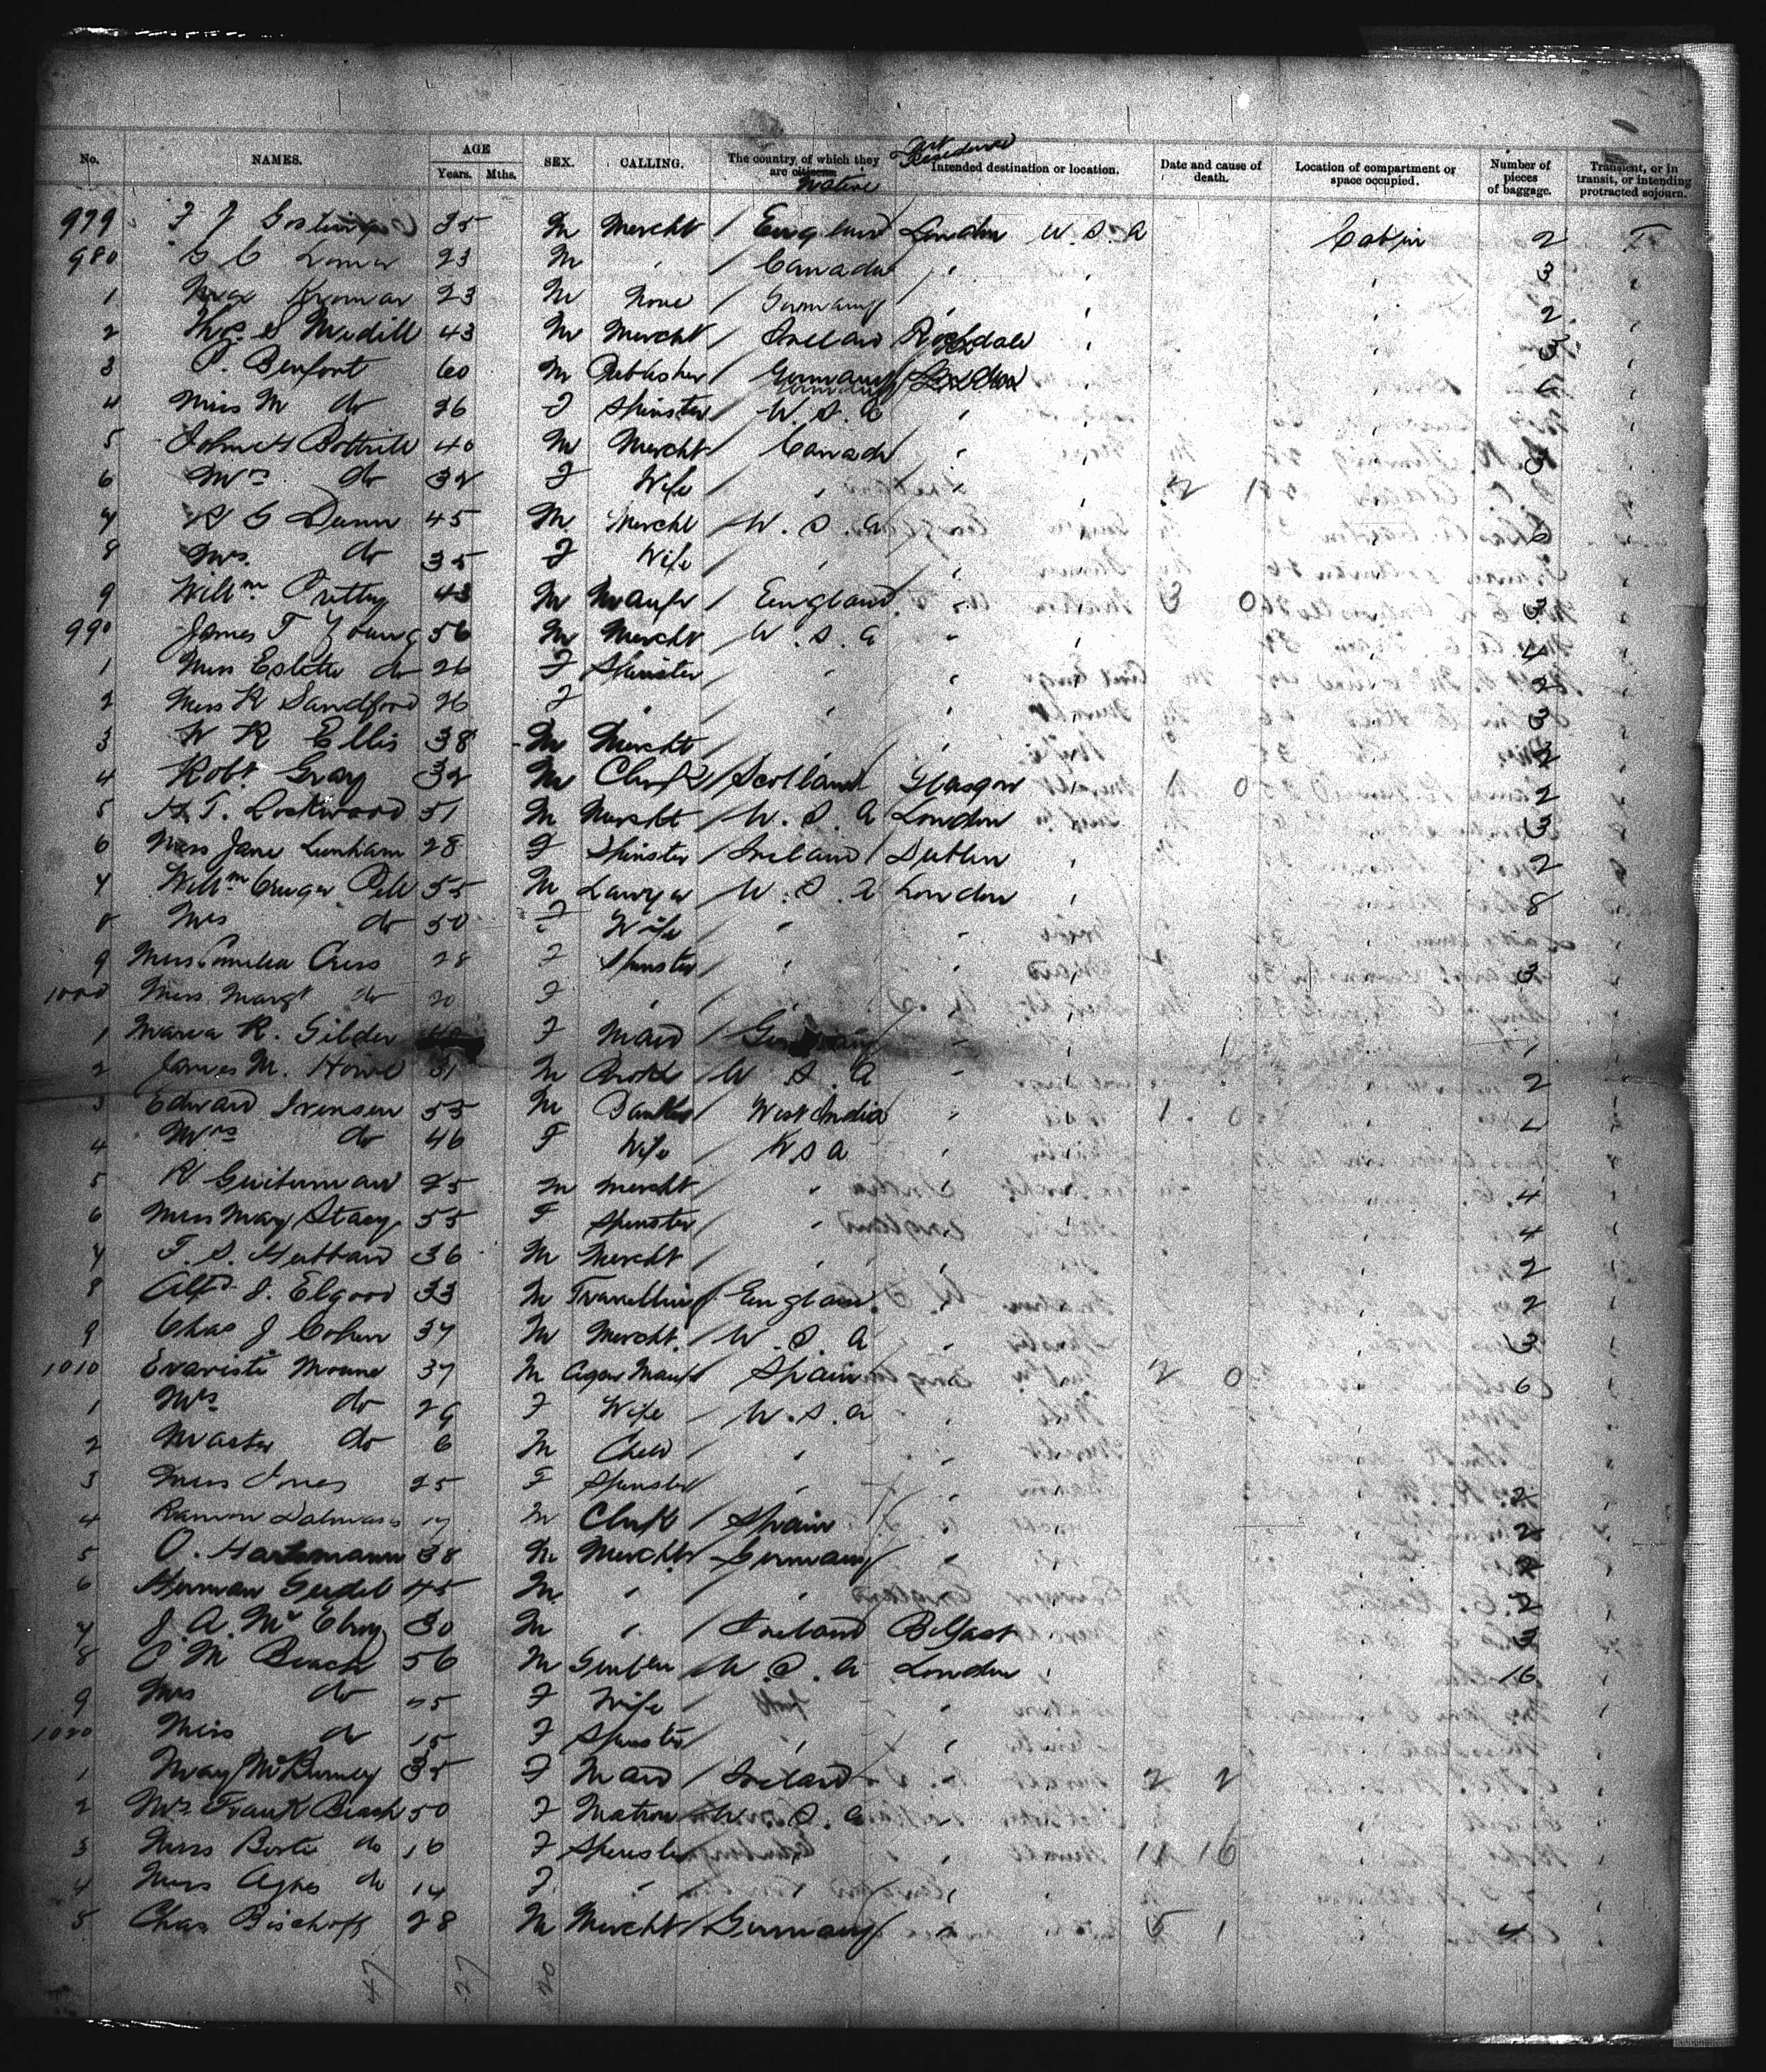 No. NAMES. AGE Years. Mths. SEX. CALLING. The country of which they are citizens Native Last Residence Intended destination or location. Date and cause of death. Location of compartment or space occupied. Number of pieces of baggage. Transient, or in transit, or intending protracted sojourn.
979 F J 35 M Mercht / England London U.S.A Cabin 2 T
980 23 M " / Canada " " " 3 "
1 Max 23 M None / Germany " " " 2 "
2 Thos S Medill 43 M Mercht / Ireland Rochdale " " 3 "
3 P. Benfort 60 M Publisher / Germany London " 6 "
4 Miss M do 26 F Spinster / U.S.A " " "
5 John H Bottrill 40 M Mercht / Canada " " "
6 Mrs do 32 F Wife / " " " 2 18 "
7 R G Dunn 45 M Mercht / U.S.A " " " 6 "
8 Mrs. do 35 F Wife / " " " "
9 Willm Pretty 43 M Manfr / England " " 3 0 " 3 "
990 James T Young 56 M Mercht / U.S.A " " " 4 "
1 Miss Estelle do 26 F Spinster / " " " " 2 "
2 Miss K Sandford 26 F " " " " " 3 "
3 W R Ellis 38 M Mercht / " " " " 2 "
4 Robt Gray 32 M Clerk / Scotland Glasgow " 1 0 " 2 "
5 H.T. Lockwood 51 M Mercht / U.S.A London " " 3 "
6 Miss Jane Lenham 28 F Spinster / Ireland / Dublin " " 2 "
7 Willm Cruger Pell 55 M Lawyer U.S.A London " " 8 "
8 Mrs do 50 F Wife / " " " "
9 Miss Amelia Cress 28 F Spinster / " " " " 3 "
1000 Miss Margt do 20 F " / " " " "
1 Maria R. Gilder F Maid / Germany " " " 1 "
2 James M. Howe 31 M U.S.A " " " 2 "
3 Edward Ivensen 55 M West India " " 1 0 "
4 Mrs do 46 F Wife / U.S.A " " "
5 R Guiterman 25 M Mercht / " " " " 4 "
6 Miss May Stacy 55 F Spinster / " " " " 4 "
7 F. S. Hubbard 36 M Mercht / " " " " 2 "
8 Alfd J. Elgood 33 M Travelling / England " " " 2 "
9 Chas J Cohen 37 M Mercht. / U.S.A " " " 3 "
1010 Evariste Moune 37 M Cigar Manfr Spain " " 2 0 " 6 "
1 Mrs do 29 F Wife / U.S.A " " " "
2 Master do 6 M Child / " " " " "
3 Miss Jones 25 F Spinster " " " " 2 "
4 Ramon Dalmases 17 M Clerk / Spain " " " 2 "
5 O. Hartsmann 38 M Mercht / Germany " " " 2 "
6 Herman Seidel 45 M " " " " " 2 "
7 J. A. McElroy 30 M " / Ireland Belfast " 3 "
8 C M Beach 56 M Gentlen U.S.A London " " 16 "
9 Mrs do F Wife / " " " "
1020 Miss do 15 F Spinster / " " " "
1 May McBurney 35 F Maid / Ireland " " 2 2 "
2 Mrs. Frank Beach 50 F Matron U.S.A " " "
3 Miss Bertie do 16 F Spinster " " " 11 16 "
4 Miss Agnes do 14 F " " " " "
5 Chas Bischoff 28 M Mercht / Germany " 5 1 " 4 "
47 27 20